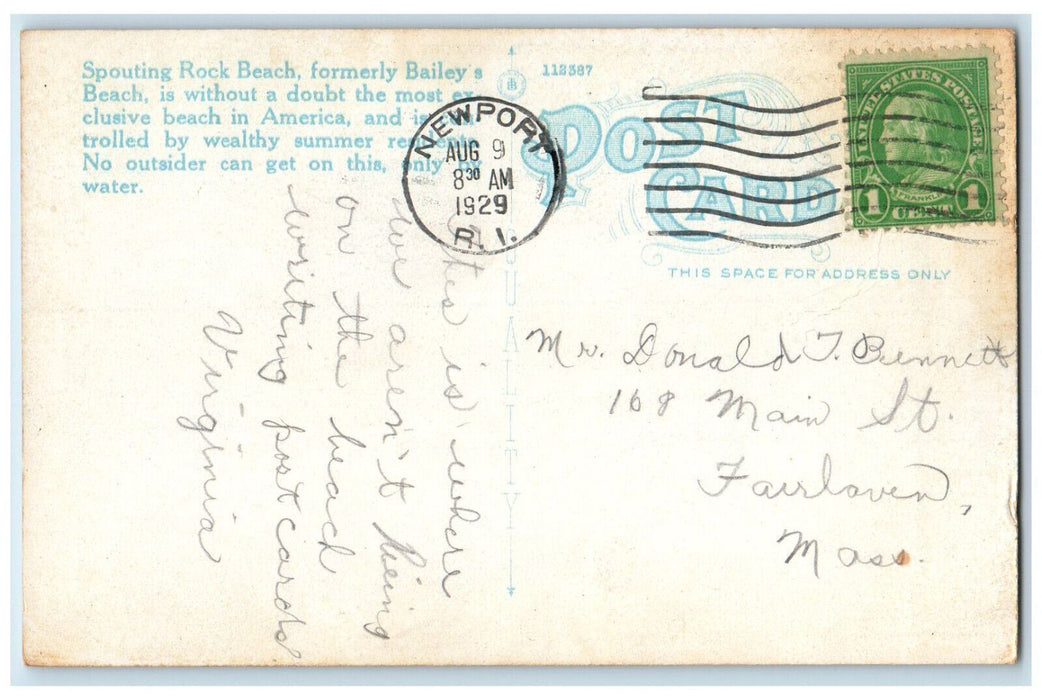 Spouting Rock Beach, formerly Bailey's
Beach, is without a doubt the most ex-
clusive beach in America, and is
trolled by wealthy summer
No outsider can get on this, only by
water.
112387
POST
CARD
QUALITY
THIS SPACE FOR ADDRESS ONLY
NEWPORT
AUG 9
8 30 AM
1929
R.I.
UNITED STATES POSTAGE
FRANKLIN
1 1
This is where
we aren't being
on the beach
writing post cards
Virginia
Mr. Donald T. Bennett
168 Main St.
Fairhaven,
Mass.